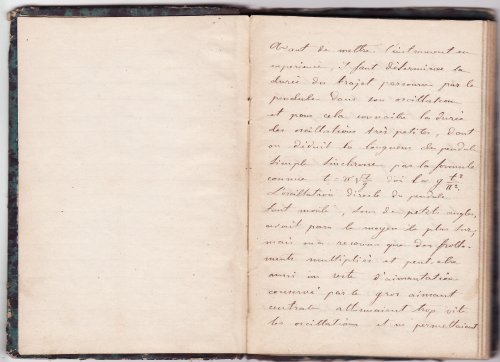 Avant de mettre l'instrument en
expérience, il faut déterminer la
durée du trajet parcouru par le
pendule dans son oscillation
et pour cela connaître la durée
des oscillations très petites, dont
on déduit la longueur du pendule
simple synchrone par la formule
connue t = π√l/g d'où l = g t²/π².
L'oscillation directe du pendule
tout monté, sous de petits angles,
avait paru le moyen le plus sûr,
mais on a reconnu que des frotte-
ments multipliés et peut-être
aussi un reste d'aimantation
conservé par le gros aimant
central atténuaient trop vite
les oscillations et ne permettaient